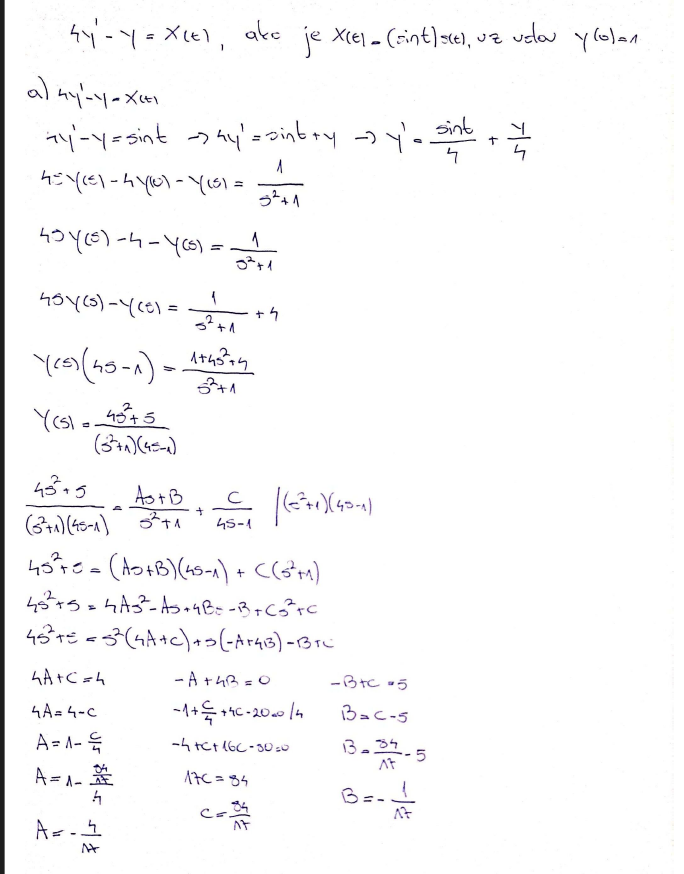 4y' - y = x(t), ako je x(t) = (sint) s(t), uz uslov y(0)=1
a) 4y'-y=x(t)
4y'-y=sint → 4y'=sint+y → y' = sint/4 + y/4
4sY(s)-4y(0)-Y(s) = 1/(s²+1)
4sY(s)-4-Y(s) = 1/(s²+1)
4sY(s)-Y(s) = 1/(s²+1) + 4
Y(s)(4s-1) = (1+4s²+4)/(s²+1)
Y(s) = (4s²+5)/((s²+1)(4s-1))
(4s²+5)/((s²+1)(4s-1)) = (As+B)/(s²+1) + C/(4s-1) |(s²+1)(4s-1)
4s²+5 = (As+B)(4s-1) + C(s²+1)
4s²+5 = 4As²-As+4Bs-B+Cs²+C
4s²+5 = s²(4A+C)+s(-A+4B)-B+C
4A+C=4 -A+4B=0 -B+C=5
4A=4-C -1+C/4+4C-20=0 /4 B=C-5
A=1-C/4 -4+C+16C-80=0 B=84/17-5
A=1-(84/17)/4 17C=84 B=-1/17
C=84/17
A=-4/17